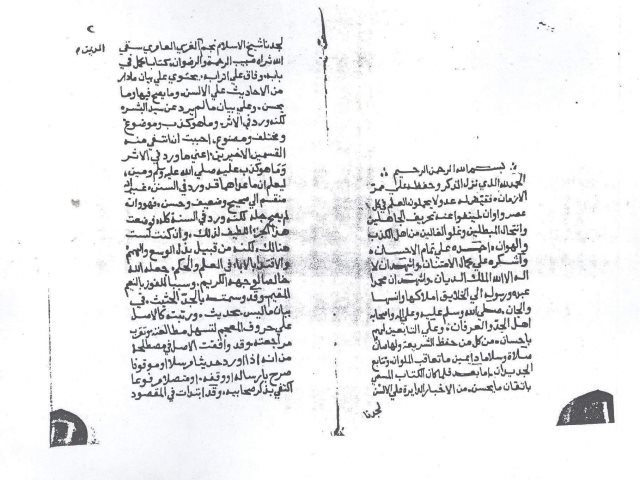 بسم الله الرحمن الرحيم
الحمد لله الذي نزل الذكر وحفظه على ممر
الازمان وقيض له عدولا يحملونه الى كل
عصر واوان لينفوا عنه تحريف الجاهلين
وانتحال المبطلين وغلو الغالين من اهل الكذب
والهوان ، احمده على تمام الاحسان ،
واشكره على كمال الامتنان واشهد ان لا
اله الا الله الملك الديان ، واشهد ان محمدا
عبده ورسوله الى الخلايق املاكها وانسها
والجان ، صلى الله وسلم عليه وعلى اله واصحابه
اهل الجد والعرفان ، وعلى التابعين لهم
باحسان ، من كل من حفظ الشريعة ولها صان
صلاة وسلاما دايمين ما تعاقب الملوان وتتابع
الجديدان ، اما بعد فلما كان الكتاب المسمى
باتقان ما يحسن ، من الاخبار الدايرة على الالسن
لجدنا
٢
لجدنا شيخ الاسلام نجم الغزي العامري سقى
الدين
الله ثراه صبيب الرحمة والرضوان ، كتابا كمل في
بابه ، وفاق على اترابه ، يحتوي على بيان ما دار
من الاحاديث على الالسن ، وما يصح فيها وما
يحسن ، وعلى بيان ما لم يرد عن سيد البشر
لكنه ورد في الاثر ، وما هو كذب وموضوع
ومختلق ومصنوع ، احببت ان انتقي منه
القسمين الاخيرين ، اعني ما ورد في الاثر
وما هو كذب عليه صلى الله عليه وسلم ومين ،
ليعلم ان ما عداهما قد ورد في السنن ، غير انه
منقسم الى صحيح وضعيف وحسن ، فهو وان
لم يصح جله لكنه ورد في السنة كله ، فوضعت
هذا الجزء اللطيف لذلك ، وان كنت لست
هنالك ، لكنه من قبيل بذل الوسع والهمم
والاقتداء بالاباء في العلم والحكم ، جعله الله
خالصا لوجهه الكريم ، وسببا للفوز بالنعيم
المقيم وقد وسمته بالجد الحثيث ، في
بيان ما ليس بحديث ، ورتبته كالاصل
على حروف المعجم لتسهل مطالعته وتقرب
مراجعته ، وقد وافقت الاصل في مصطلحه
من انه اذا اورد حديثا مرسلا او موقوفا
صرح بارساله او وقفه ، او متصلا مرفوعا
اكتفى بذكر صحابيه ، وقد ابتدات في المقصود